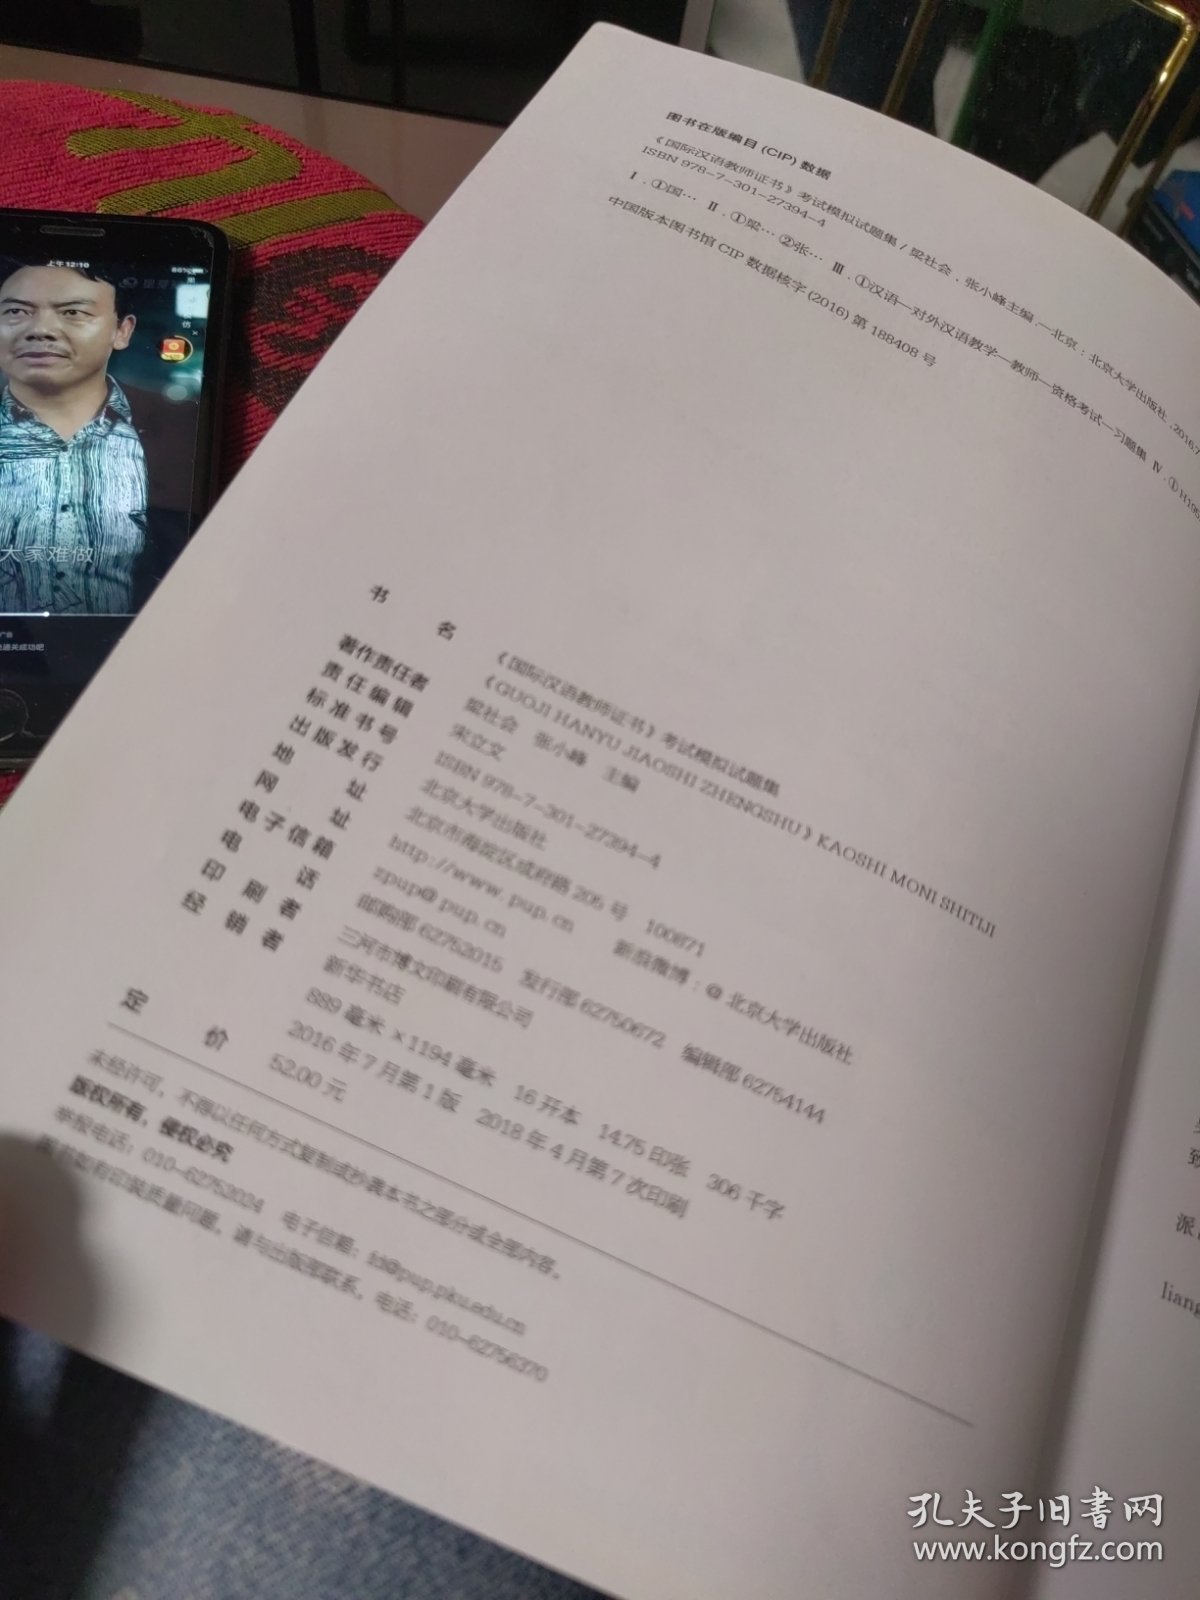 图书在版编目 (CIP) 数据
《国际汉语教师证书》考试模拟试题集 / 梁社会，张小峰主编 .—北京：北京大学出版社，2016.7
ISBN 978-7-301-27394-4
Ⅰ . ①国… Ⅱ . ①梁… ②张… Ⅲ . ①汉语—对外汉语教学—教师—资格考试—习题集 Ⅳ . ① H195
中国版本图书馆 CIP 数据核字 (2016) 第 188408 号
书 名 《国际汉语教师证书》考试模拟试题集
《GUOJI HANYU JIAOSHI ZHENGSHU》KAOSHI MONI SHITIJI
著作责任者 梁社会 张小峰 主编
责任编辑 宋立文
标准书号 ISBN 978-7-301-27394-4
出版发行 北京大学出版社
地 址 北京市海淀区成府路 205 号 100871
网 址 http://www.pup.cn 新浪微博：@ 北京大学出版社
电子信箱 zpup@pup.cn
电 话 邮购部 62752015 发行部 62750672 编辑部 62754144
印 刷 者 三河市博文印刷有限公司
经 销 者 新华书店
889 毫米 ×1194 毫米 16 开本 14.75 印张 306 千字
2016 年 7 月第 1 版 2018 年 4 月第 7 次印刷
定 价 52.00 元
未经许可，不得以任何方式复制或抄袭本书之部分或全部内容。
版权所有，侵权必究
举报电话：010-62752024 电子信箱：fd@pup.pku.edu.cn
图书如有印装质量问题，请与出版部联系，电话：010-62756370
上午 12:10
88%
大家难做
广告
通关成功吧
致
派
liang
孔夫子旧书网
www.kongfz.com